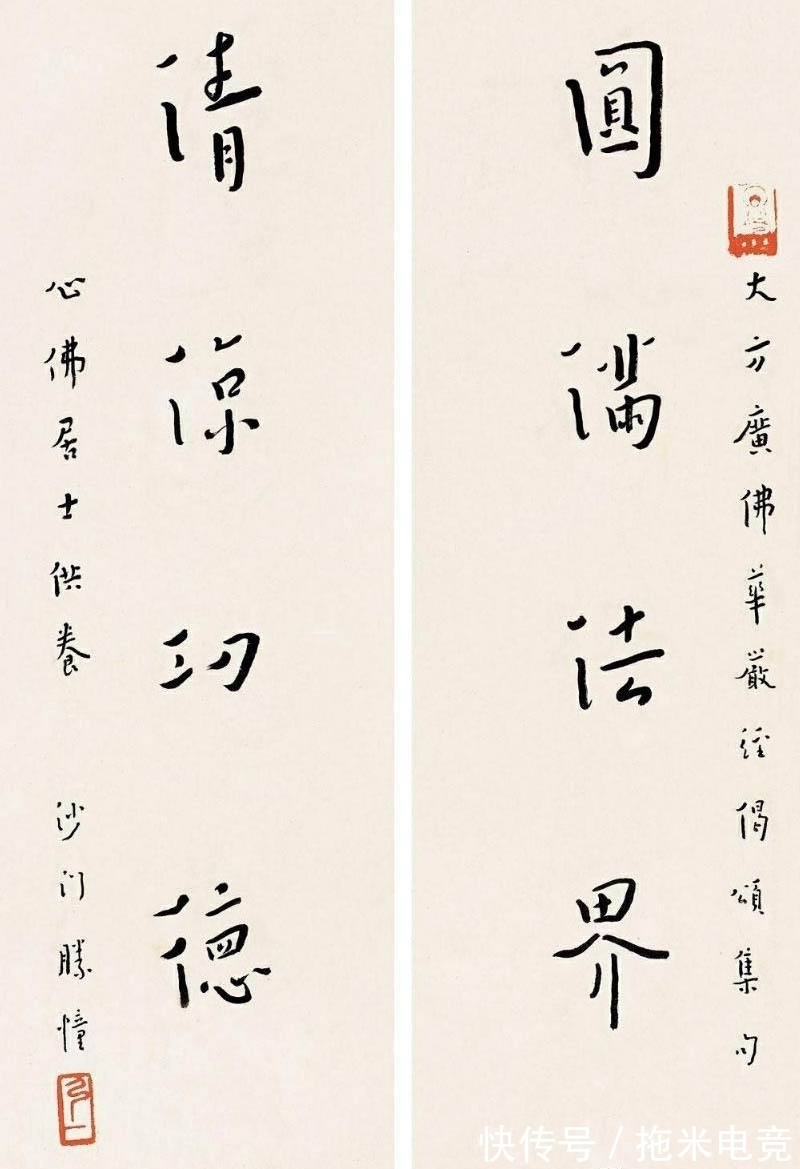 大方廣佛華嚴經偈頌集句
圓滿法界
清涼功德
心佛居士供養 沙門勝幢
弘一
快传号 / 拖米电竞